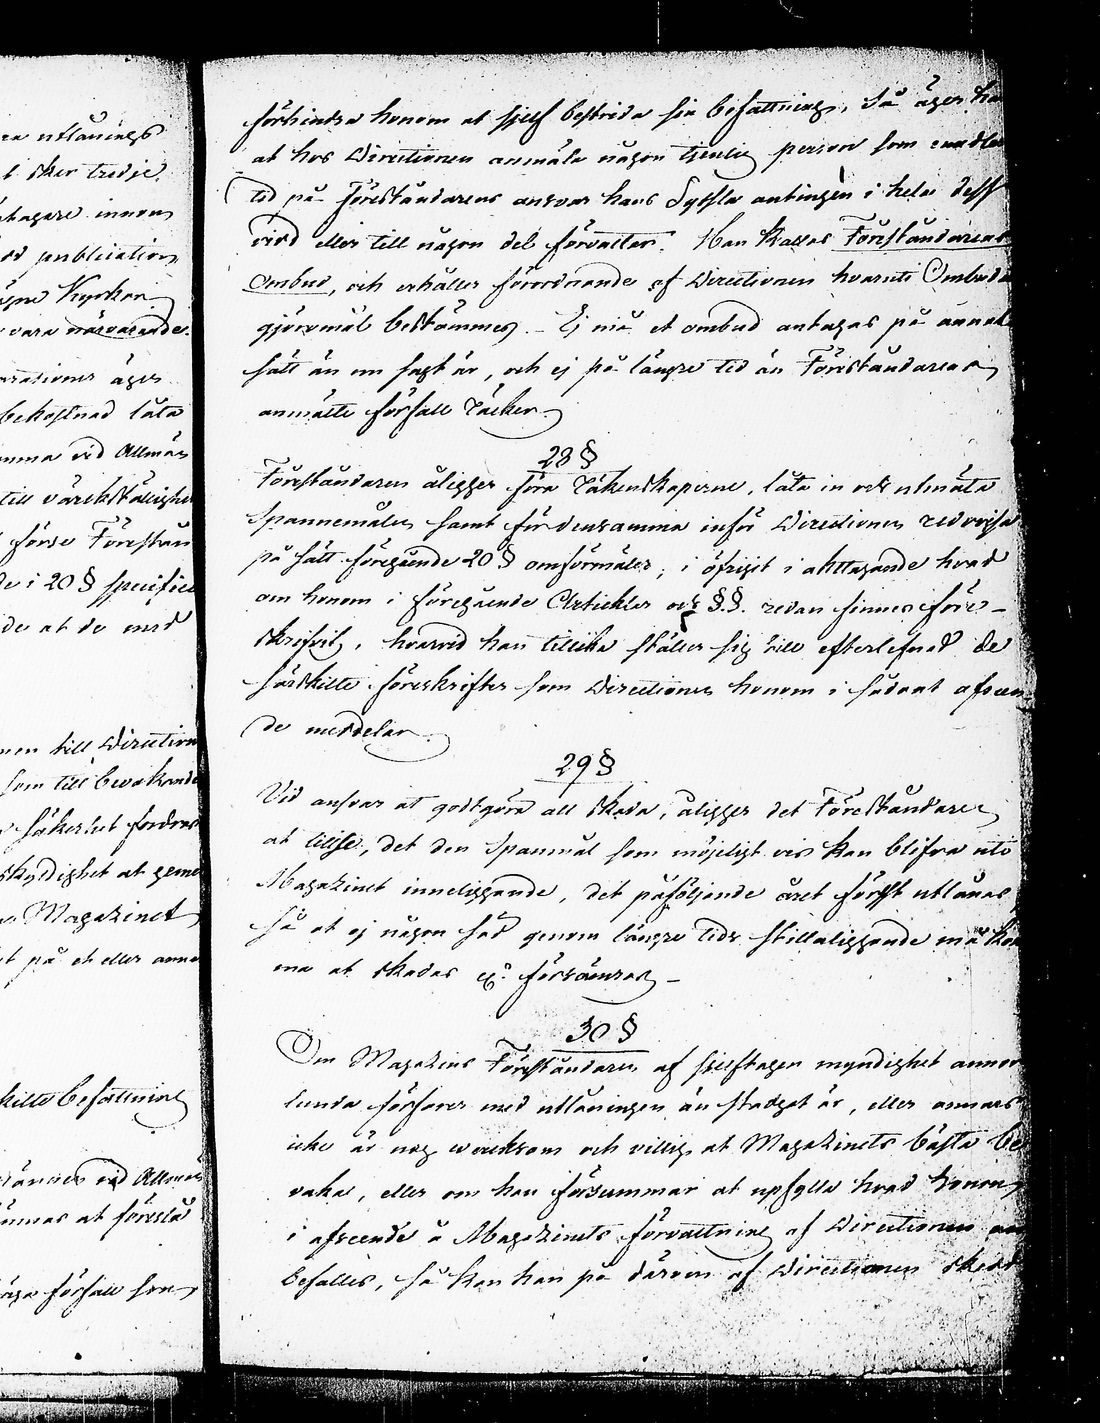 ra utlånings
t sker tredje
tagare innom
d publication
Kyrkor
vara närvarande.
rationer äger
bekostnad låta
mma vid Allmän
till värckställighe
förse Förestån
de i 20 § specifice
de at de med
nen till Direction
som till bevakande
säkerhet fordras
skyldighet at geme
Magazinet
t på et eller anna
skilte befattning
vid Allmän
ämnas at föreslå
förfall som
förhindra honom at sjelf bestrida sin befattning, så äger han
at hos Directionen anmäla någon tjenlig person som emedler
tid på Föreståndarens ansvar hans Syssla antingen i hela dess
vid eller till någon del förvaltar. Han kallas Föreståndarens
Ombud, och erhåller förordnande af Directionen hvaruti Ombuds
gjöromål bestämmes. Ej må et ombud antagas på annat
sätt än nu sagt är, och ej på längre tid än Föreståndarens
anmälte förfall räcker.
28 §
Föreståndaren åligger föra Räkenskaperne, låta in och utmäta
Spannemålen samt för densamma inför Directionen redovisa
på sätt föregående 20 § omförmäler, i öfrigt i akttagande hvad
om honom i föregående Artickler och §.§. redan finnes före-
skrifvit, hvarvid han tillika ställer sig till efterlefnad de
särskilte föreskrifter som Directionen honom i sådant afseen
de meddelar.
29 §
Vid ansvar at godtgöra all skada, åligger det Föreståndaren
at tillse, det den Spanmål som möjeligt vis kan blifva uti
Magazinet inneliggande, det påföljande året först utlånas,
så at ej någon säd genom längre tids stillaliggande må kom
ma at skadas eller försämras. -
30 §
Om Magazins Föreståndaren af sjelftagen myndighet annor
lunda förfarer med utlåningen än stadgat är, eller annars
icke är nog wercksom och villig at Magazinets bästa be
vaka, eller om han försummar at upfylla hvad honom
i afseende å Magazinets förvaltning af Directionen an
befalles, så kan han på därom af Directionen skedd